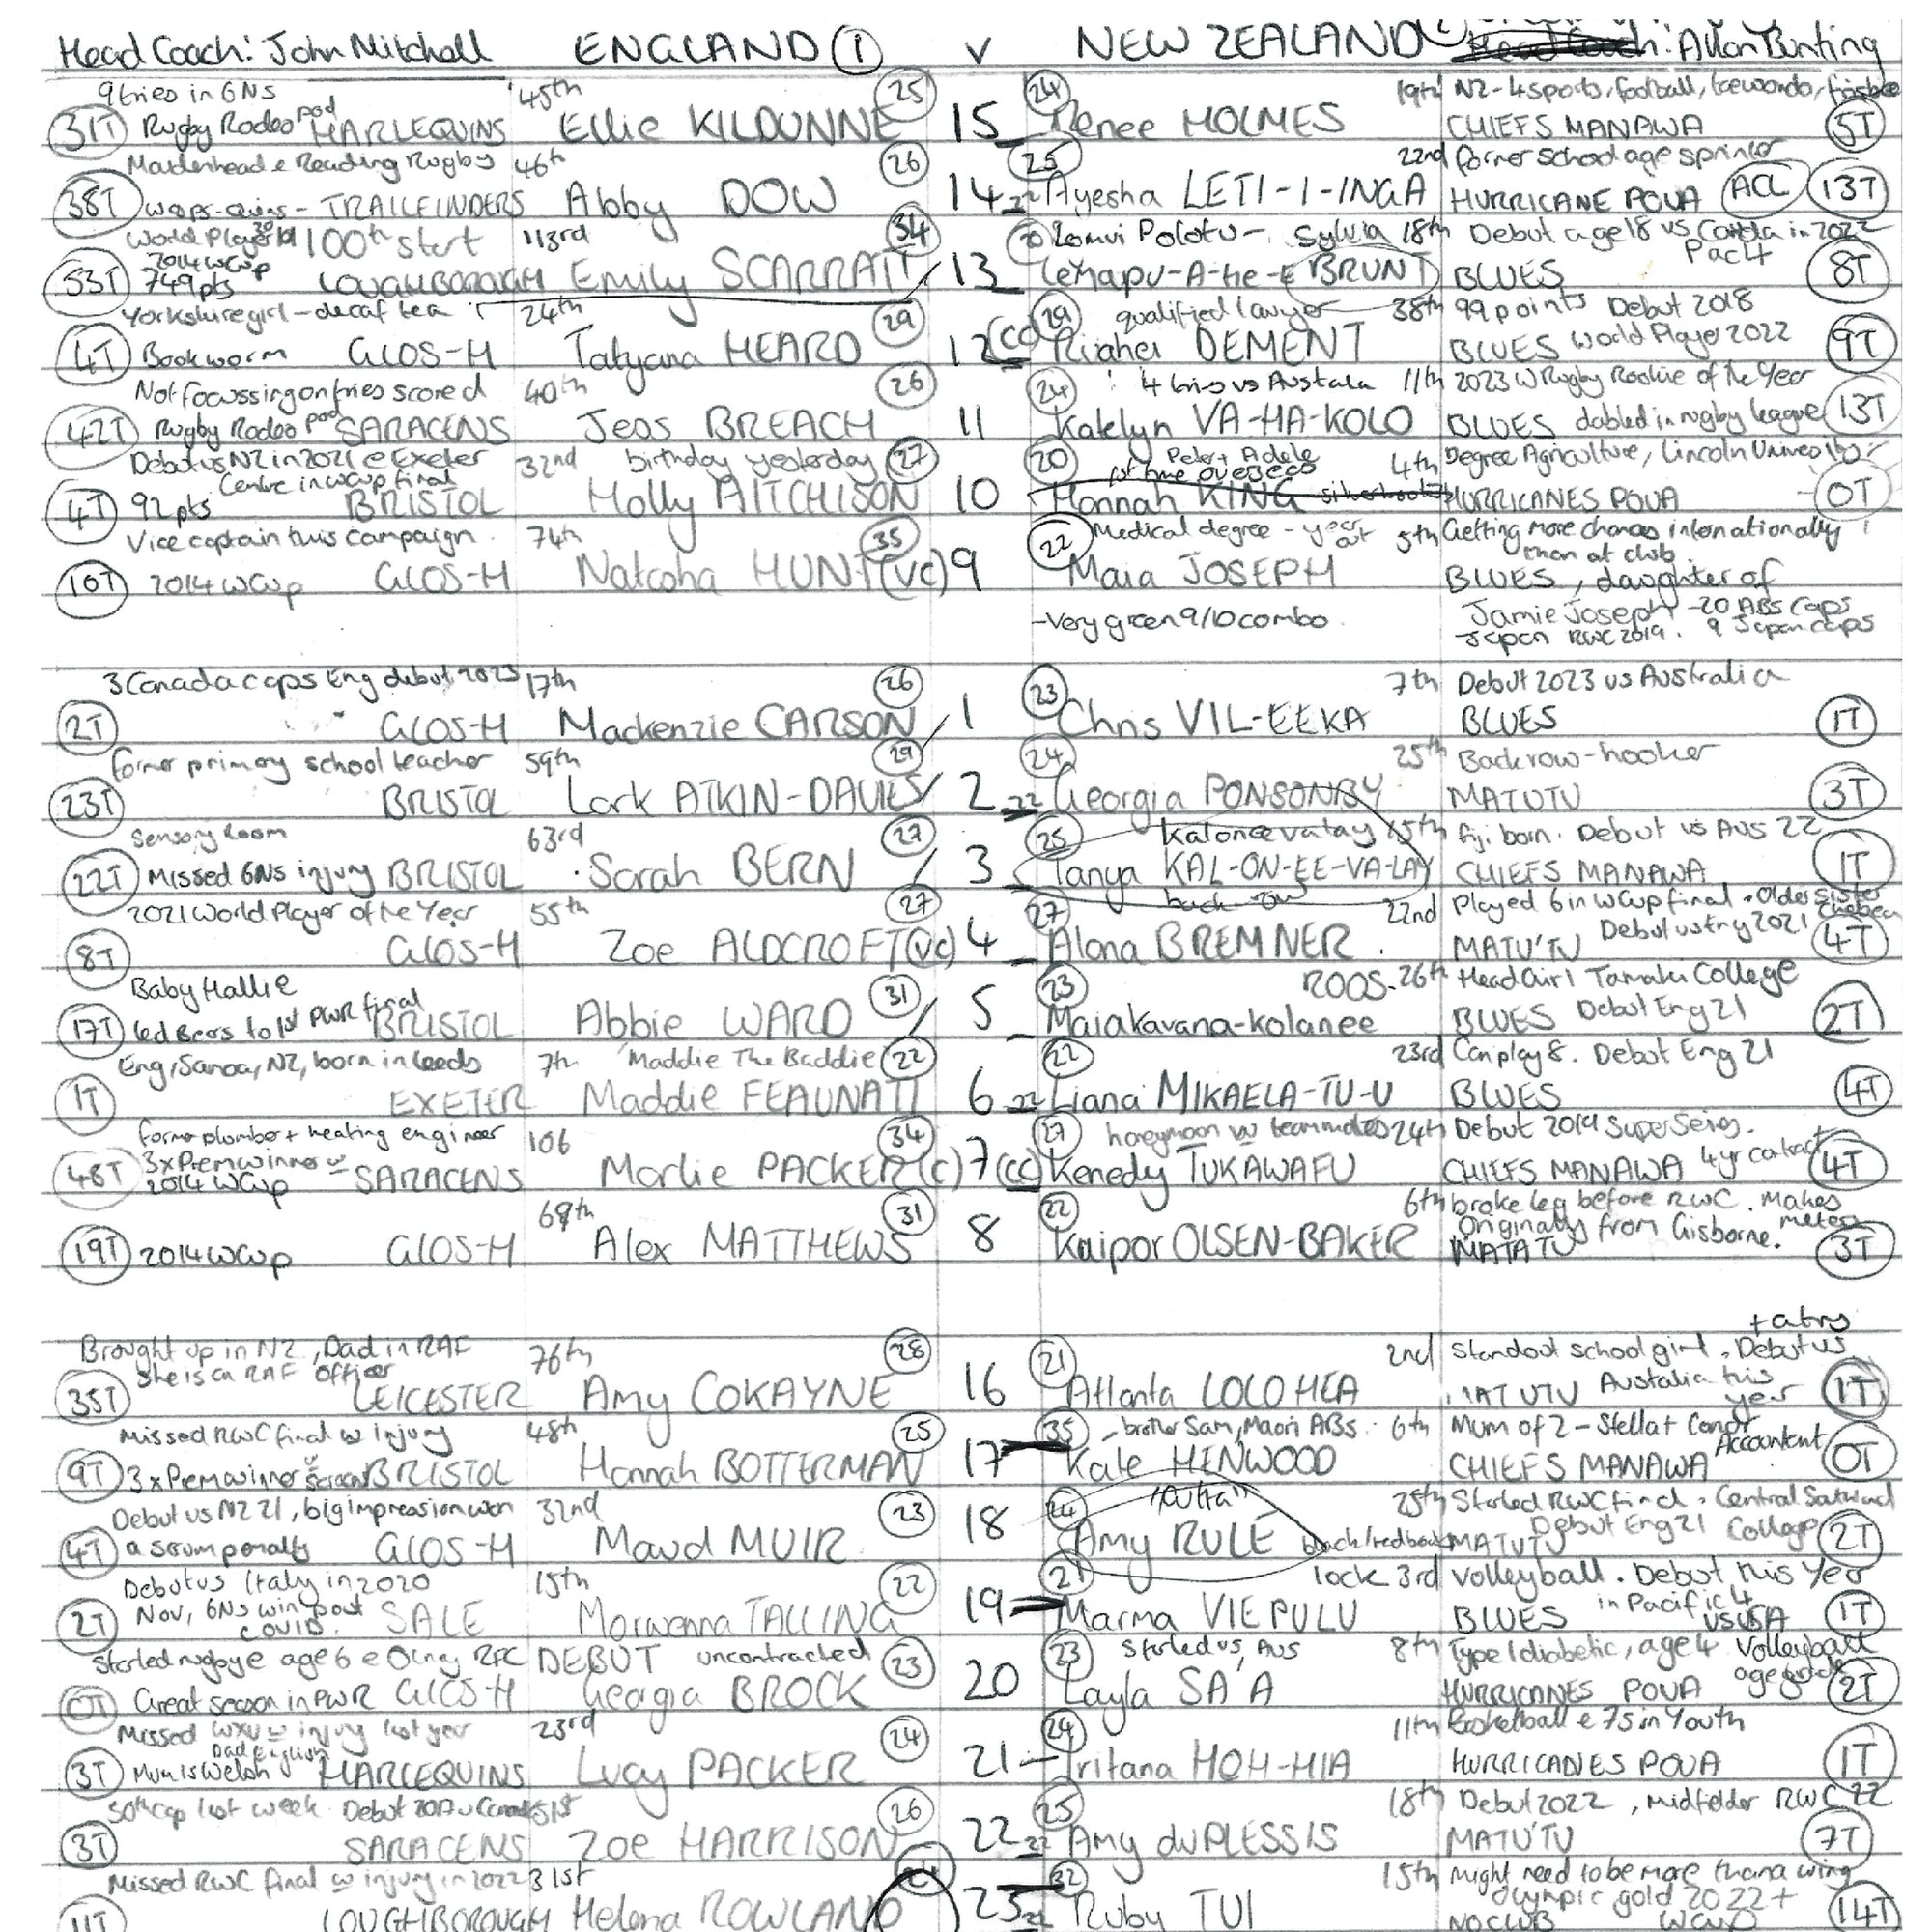 Head Coach: John Mitchell ENGLAND 1 v NEW ZEALAND Head Coach: Allan Bunting
9 tries in 6Ns 45th 25 24 19th NZ - 4 sports, football, taewondo, frisbee
31T Rugby Rodeo pod HARLEQUINS Ellie KILDUNNE 15 Renee HOLMES CHIEFS MANAWA 5T
Maidenhead e Reading Rugby 46th 26 25 22nd former school age sprinter
38T wasps-quins-TRAILFINDERS Abby DOW 14 22 Ayesha LETI-I-INGA HURRICANE POUA ACL 13T
World Player 19 100th start 113rd 34 20 Lomui Polotu- Sylvia 18th Debut age 18 vs Canada in 2022
2014 WCup Pac 4
53T 749pts LOUGHBOROUGH Emily SCARRATT 13 BRUNT BLUES 8T
Yorkshire girl - decaf tea 24th 29 29 qualified lawyer 38th 99 points Debut 2018
4T Bookworm GLOS-H Tatyana HEARD 12 (cc) Ruahei DEMENT BLUES World Player 2022 9T
Not focussing on tries scored 40th 26 24 4 tries vs Austalia 11th 2023 W Rugby Rookie of the Year
42T Rugby Rodeo pod SARACENS Jess BREACH 11 Katelyn VA-HA-KOLO BLUES dabled in rugby league 13T
Debut vs NZ in 2021 e Exeter 32nd birthday yesterday 27 20 Peter + Adele 4th Degree Agriculture, Lincoln University
Centre in WCup final 1st time overseas
4T 92pts BRISTOL Holly AITCHISON 10 Hannah KING HURRICANES POUA 0T
Vice captain this campaign. 74th 35 22 Medical degree - year out 5th Getting more chances internationally
than at club.
10T 2014 WCup GLOS-H Natasha HUNT (VC) 9 Maia JOSEPH BLUES, daughter of
-Very green 9/10 combo. Jamie Joseph - 20 ABs caps
Japan RWC 2019. 9 Japan caps
3 Canada caps Eng debut 2023 17th 26 23 7th Debut 2023 vs Australia
2T GLOS-H Mackenzie CARSON 1 Chris VIL-EEKA BLUES 1T
former primary school teacher 59th 29 24 25th Backrow-hooker
23T BRISTOL Lark ATKIN-DAVIES 2 22 Georgia PONSONBY MATUTU 3T
Sensory Room 63rd 27 25 Kalonee vatay 15th Fiji born. Debut vs AUS 22
22T Missed 6Ns injury BRISTOL Sarah BERN 3 Tanya KAL-ON-EE-VA-LAY CHIEFS MANAWA 1T
2021 World Player of the Year 55th 27 27 22nd Played 6 in WCup final. Older sister Chelsea
8T GLOS-H Zoe ALDCROFT (VC) 4 Alana BREMNER MATU'TU Debut vs Eng 2021 4T
Baby Hallie 31 23 ROOS - 26th Head Girl Tamaki College
17T led Bears to 1st PWR final BRISTOL Abbie WARD 5 Maiakavana-kolanee BLUES Debut Eng 21 2T
Eng, Samoa, NZ, born in Leeds 7th 'Maddie The Baddie 22 22 23rd Can play 8. Debut Eng 21
1T EXETER Maddie FEAUNATI 6 22 Liana MIKAELA-TU-U BLUES 4T
former plumber + heating engineer 106 34 27 honeymoon w teammates 24th Debut 2019 Super Series.
48T 3xPrem winner SARACENS Marlie PACKER (C) 7 (cc) Kenedy TUKAWAFU CHIEFS MANAWA 4yr contract 4T
2014 WCup
69th 31 22 6th broke leg before RWC. Makes metres
Originally from Gisborne.
19T 2014 WCup GLOS-H Alex MATTHEWS 8 Kaipor OLSEN-BAKER MATATU 3T
+ a try
Brought up in NZ, Dad in RAF 76th 28 21 2nd Standout school girl. Debut vs
She is a RAF officer
35T LEICESTER Amy COKAYNE 16 Atlanta LOLOHEA MATUTU Australia this year 1T
Missed RWC final w injury 48th 25 35 - brother Sam, Maori ABs. 6th Mum of 2 - Stella + Connor
Accountant
9T 3xPrem winner BRISTOL Hannah BOTTERMAN 17 Kate HENWOOD CHIEFS MANAWA 0T
Debut vs NZ 21, big impression won 32nd 23 24 25th Started RWC final. Central Southland
4T a scrum penalty GLOS-H Maud MUIR 18 Amy RULE black/red boots MATUTU Debut Eng 21 College 2T
Debut vs Italy in 2020 15th 22 21 lock 3rd Volleyball. Debut this Year
2T Nov, 6Ns win post COVID. SALE Morwenna TALLING 19 Marma VIEPULU BLUES in Pacific 4 vs USA 1T
Started rugby e age 6 e Olney RFC DEBUT uncontracted 23 23 Started vs, AUS 8th Type 1 diabetic, age 4 Volleyball
0T Great season in PWR GLOS-H Georgia BROCK 20 Layla SA'A HURRICANES POUA age grade 2T
Missed WXV w injury last year 23rd 24 24 11th Basketball e 7s in Youth
Dad English
3T Mum is Welsh HARLEQUINS Lucy PACKER 21 Iritana HOH-HIA HURRICANES POUA 1T
50th cap last week. Debut 2017 v Canada 51st 26 25 18th Debut 2022, midfielder RWC 22
3T SARACENS Zoe HARRISON 22 22 Amy du PLESSIS MATU'TU 7T
Missed RWC final w injury in 2022 31st 32 15th Might need to be more than a wing
Olympic gold 2022 +
11T LOUGHBOROUGH Helena ROWLAND 23 22 Ruby TUI NO CLUB WCup 14T